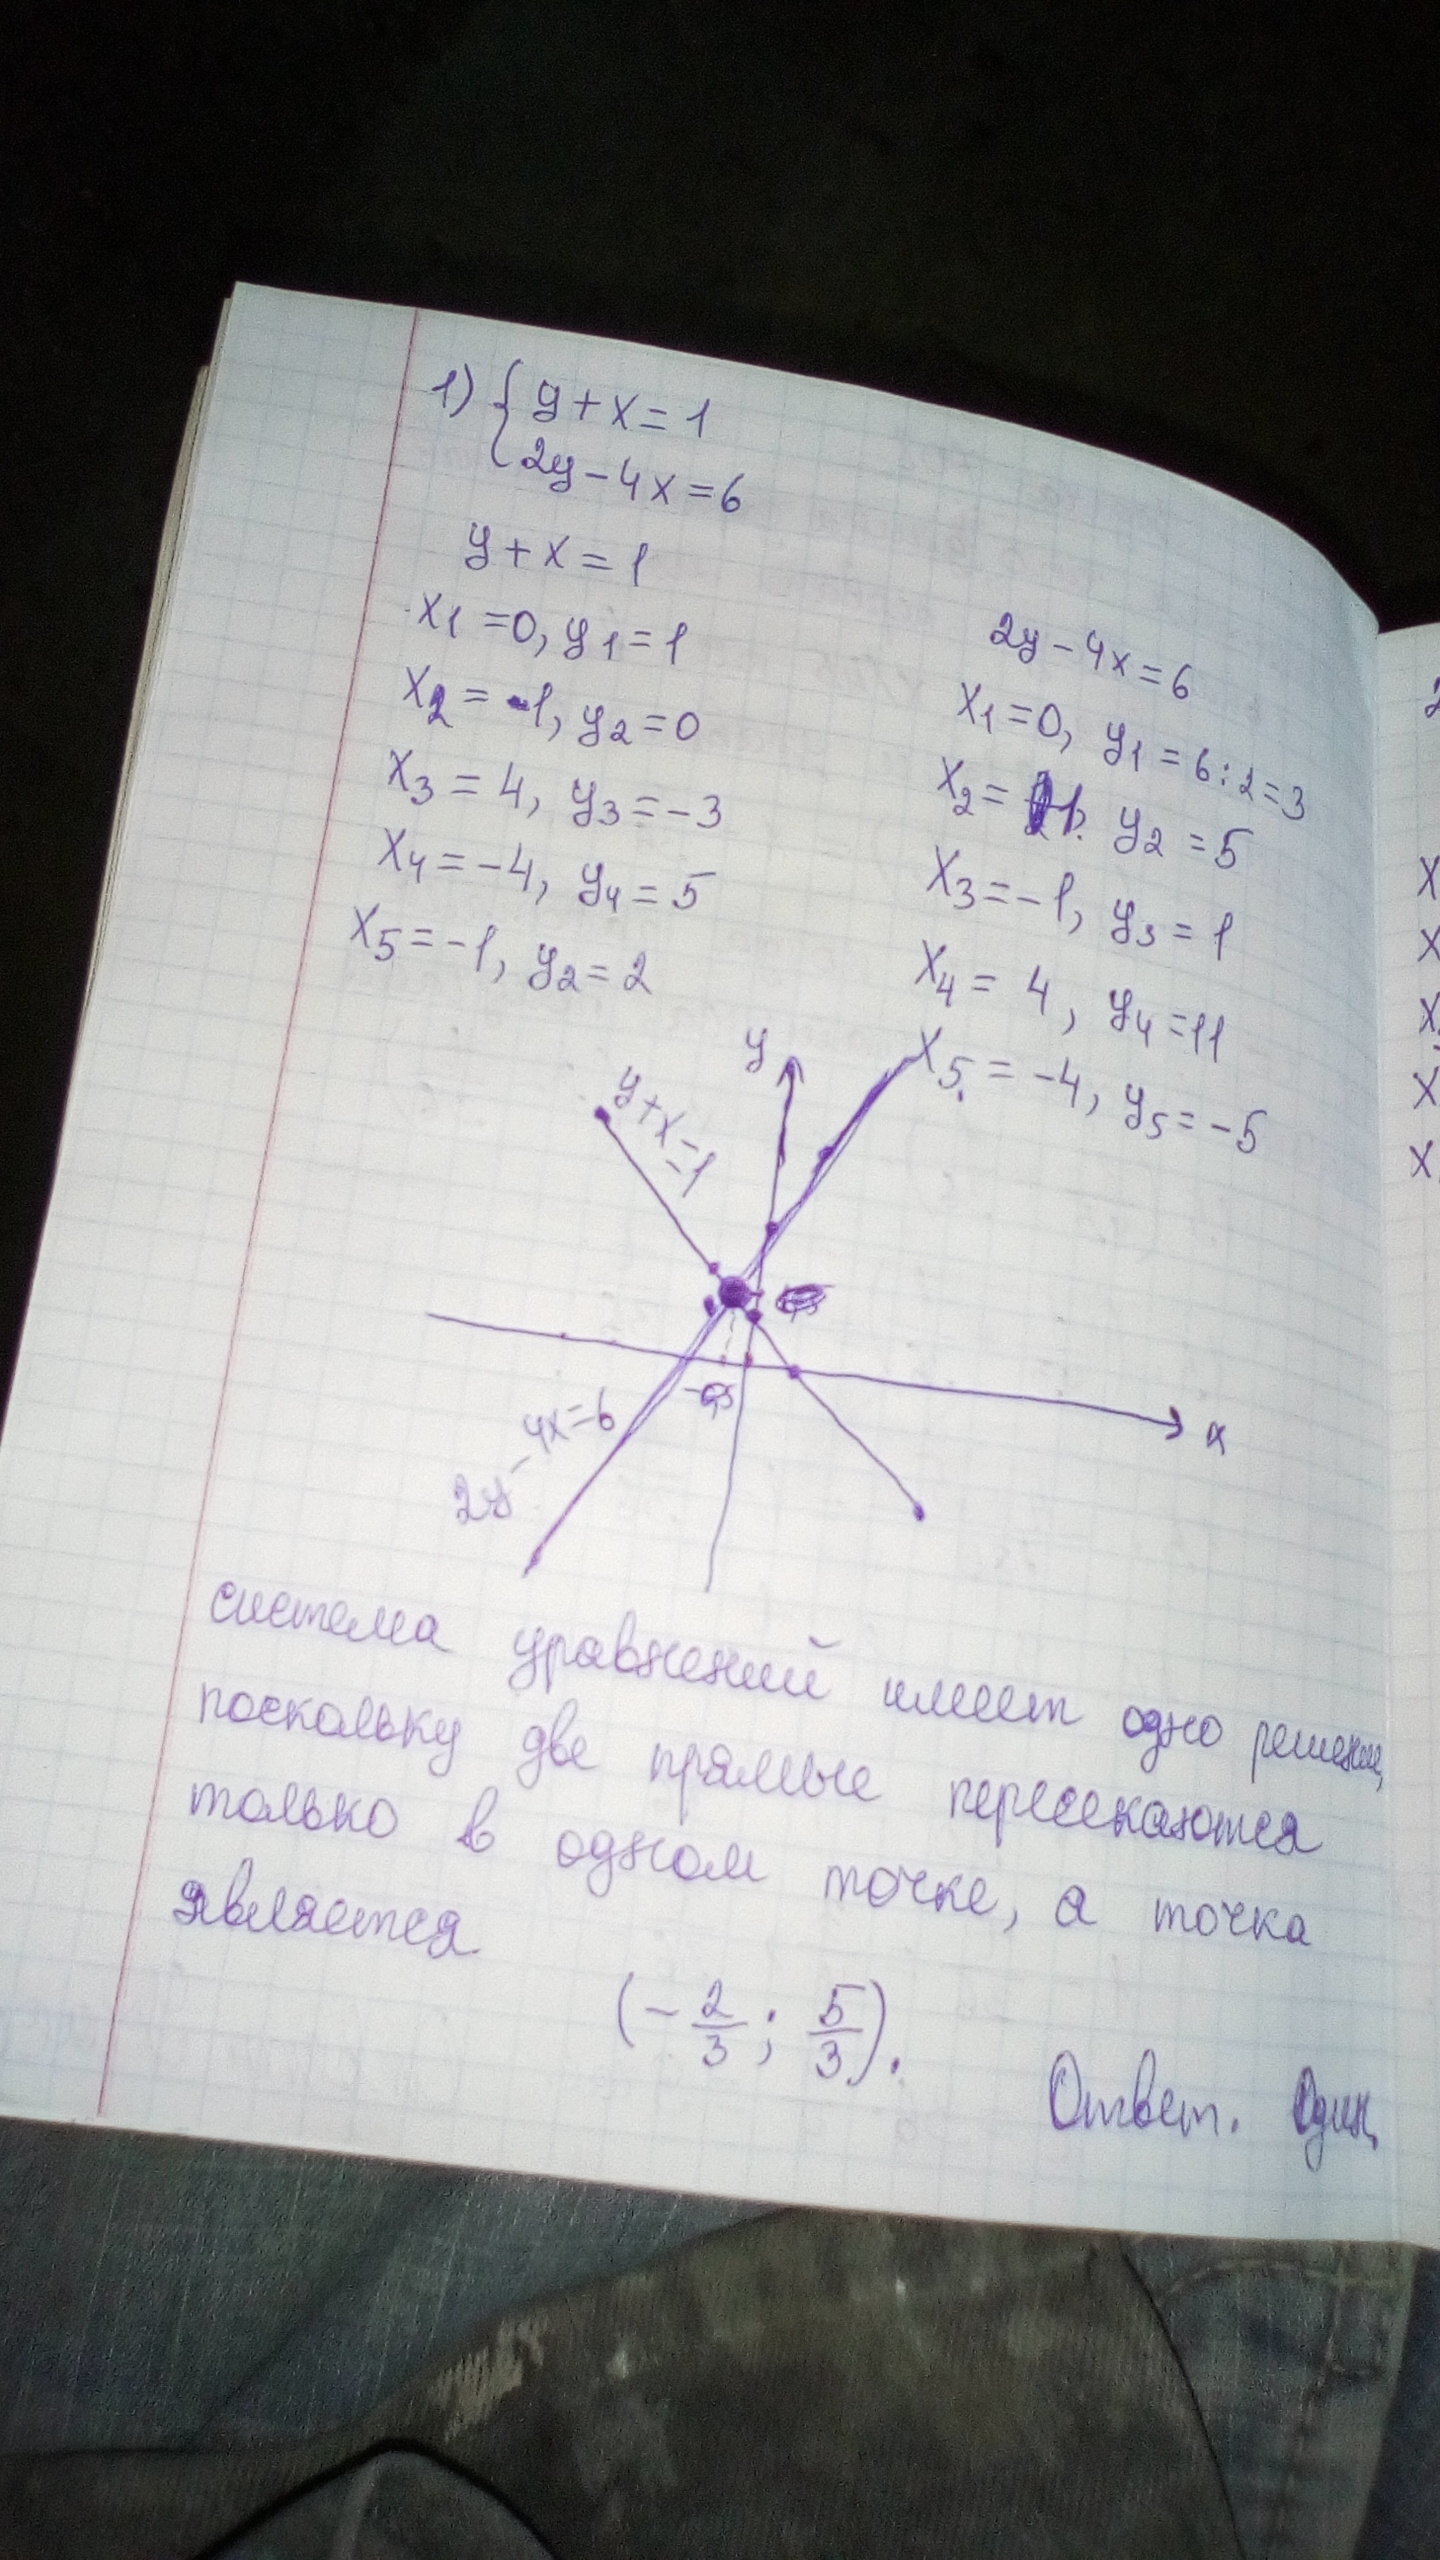 1) { y + x = 1
2y - 4x = 6
y + x = 1
x1 = 0, y1 = 1
x2 = -1, y2 = 0
x3 = 4, y3 = -3
x4 = -4, y4 = 5
x5 = -1, y2 = 2
2y - 4x = 6
x1 = 0, y1 = 6 : 2 = 3
x2 = 1, y2 = 5
x3 = -1, y3 = 1
x4 = 4, y4 = 11
x5 = -4, y5 = -5
y
y + x = 1
x
2y - 4x = 6
система уравнений имеет одно решение,
поскольку две прямые пересекаются
только в одном точке, а точка
является
(-2/3; 5/3).
Ответ. Один
2
x
x
x
x
x